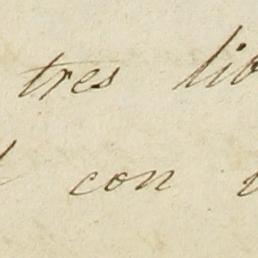 tres lib
con